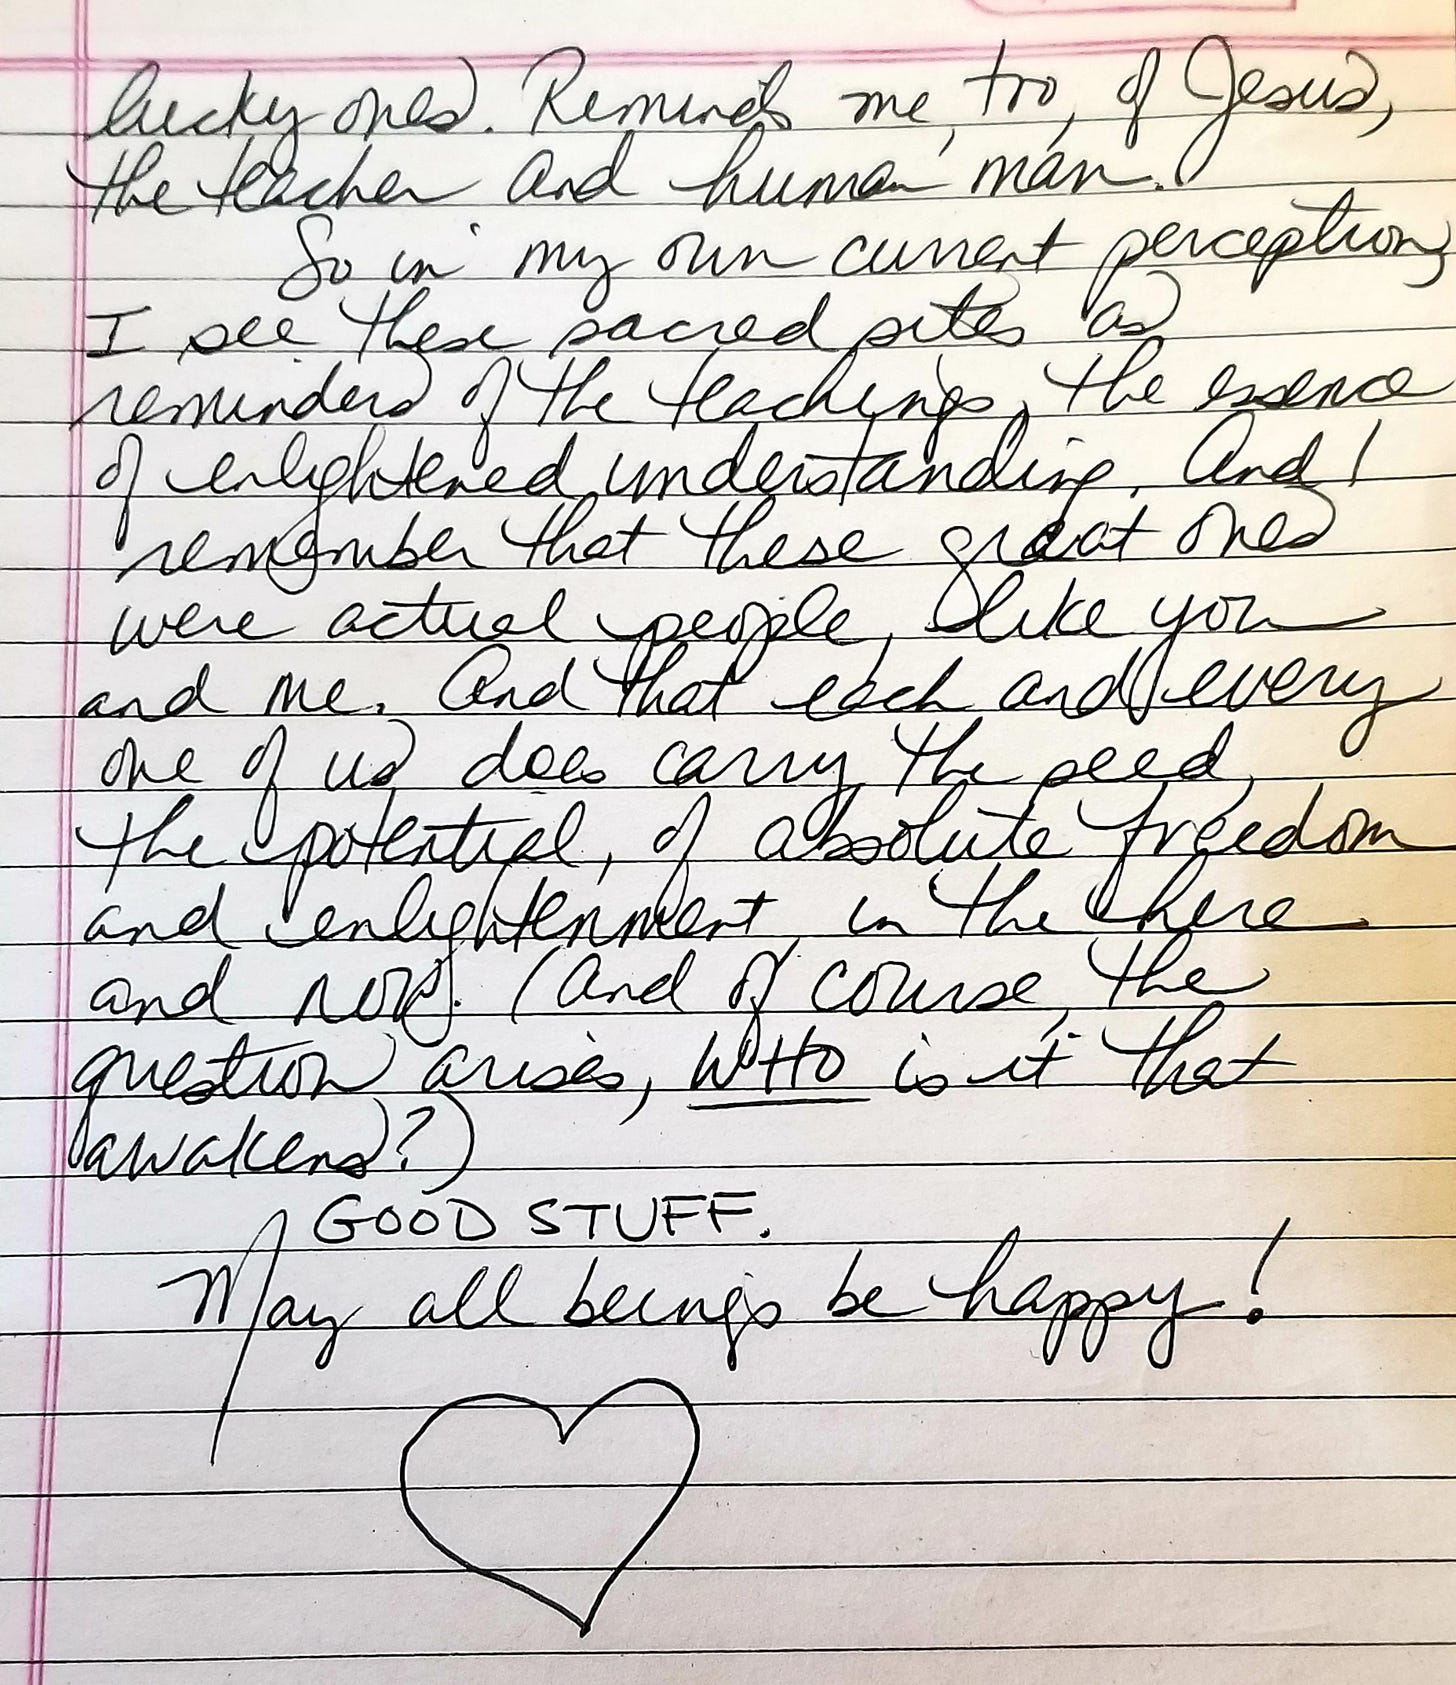 lucky ones. Reminds me, too, of Jesus,
the teacher and human man.
So in my own current perception,
I see these sacred sites as
reminders of the teachings, the essence
of enlightened understanding. And I
remember that these great ones
were actual people, like you
and me. And that each and every
one of us does carry the seed,
the potential, of absolute freedom
and enlightenment, in the here
and now. (And of course, the
question arises, WHO is it that
awakens?)
GOOD STUFF.
May all beings be happy!